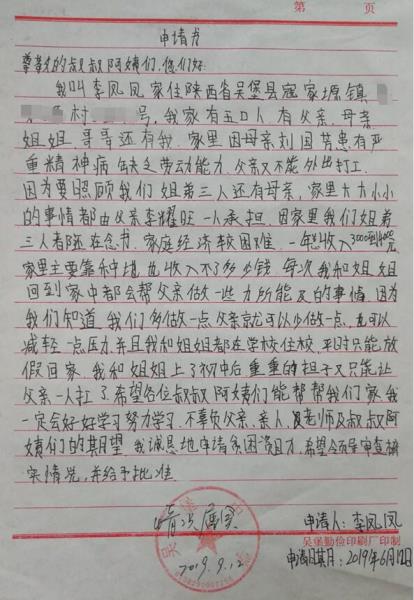 第 页
申请书
尊敬的叔叔阿姨们,您们好:
我叫李凤凤家住陕西省吴堡县寇家塬镇
村 号,我家有五口人有父亲、母亲
姐姐、哥哥还有我、家里因母亲刘国芳患有严
重精神病缺乏劳动能力,父亲又不能外出打工、
因为要照顾我们姐弟三人还有母亲、家里大大小小
的事情都由父亲李耀旺一人承担.因家里我们姐弟
三人都还在念书.家庭经济较困难.一年总收入3000到4000元
家里主要靠种地.也收入不了多少钱.每次我和姐姐
回到家中都会帮父亲做一些力所能及的事情.因为
我们知道,我们多做一点父亲就可以少做一点、也可以
减轻一点压力.并且我和姐姐都在学校住校,平时只能放
假回家、我和姐姐上了初中后重重的担子又只能让
父亲一人扛了.希望各位叔叔阿姨们能帮帮我们家,我
一定会好好学习努力学习.不辜负父亲、亲人、及老师及叔叔阿
姨们的期望.我诚恳地申请贫困资助.希望领导审查确
实情况,并给予批准.
情况属实
2019.9.12
申请人:李凤凤
吴堡勤俭印刷厂印制
申请日期:2019年6月12日